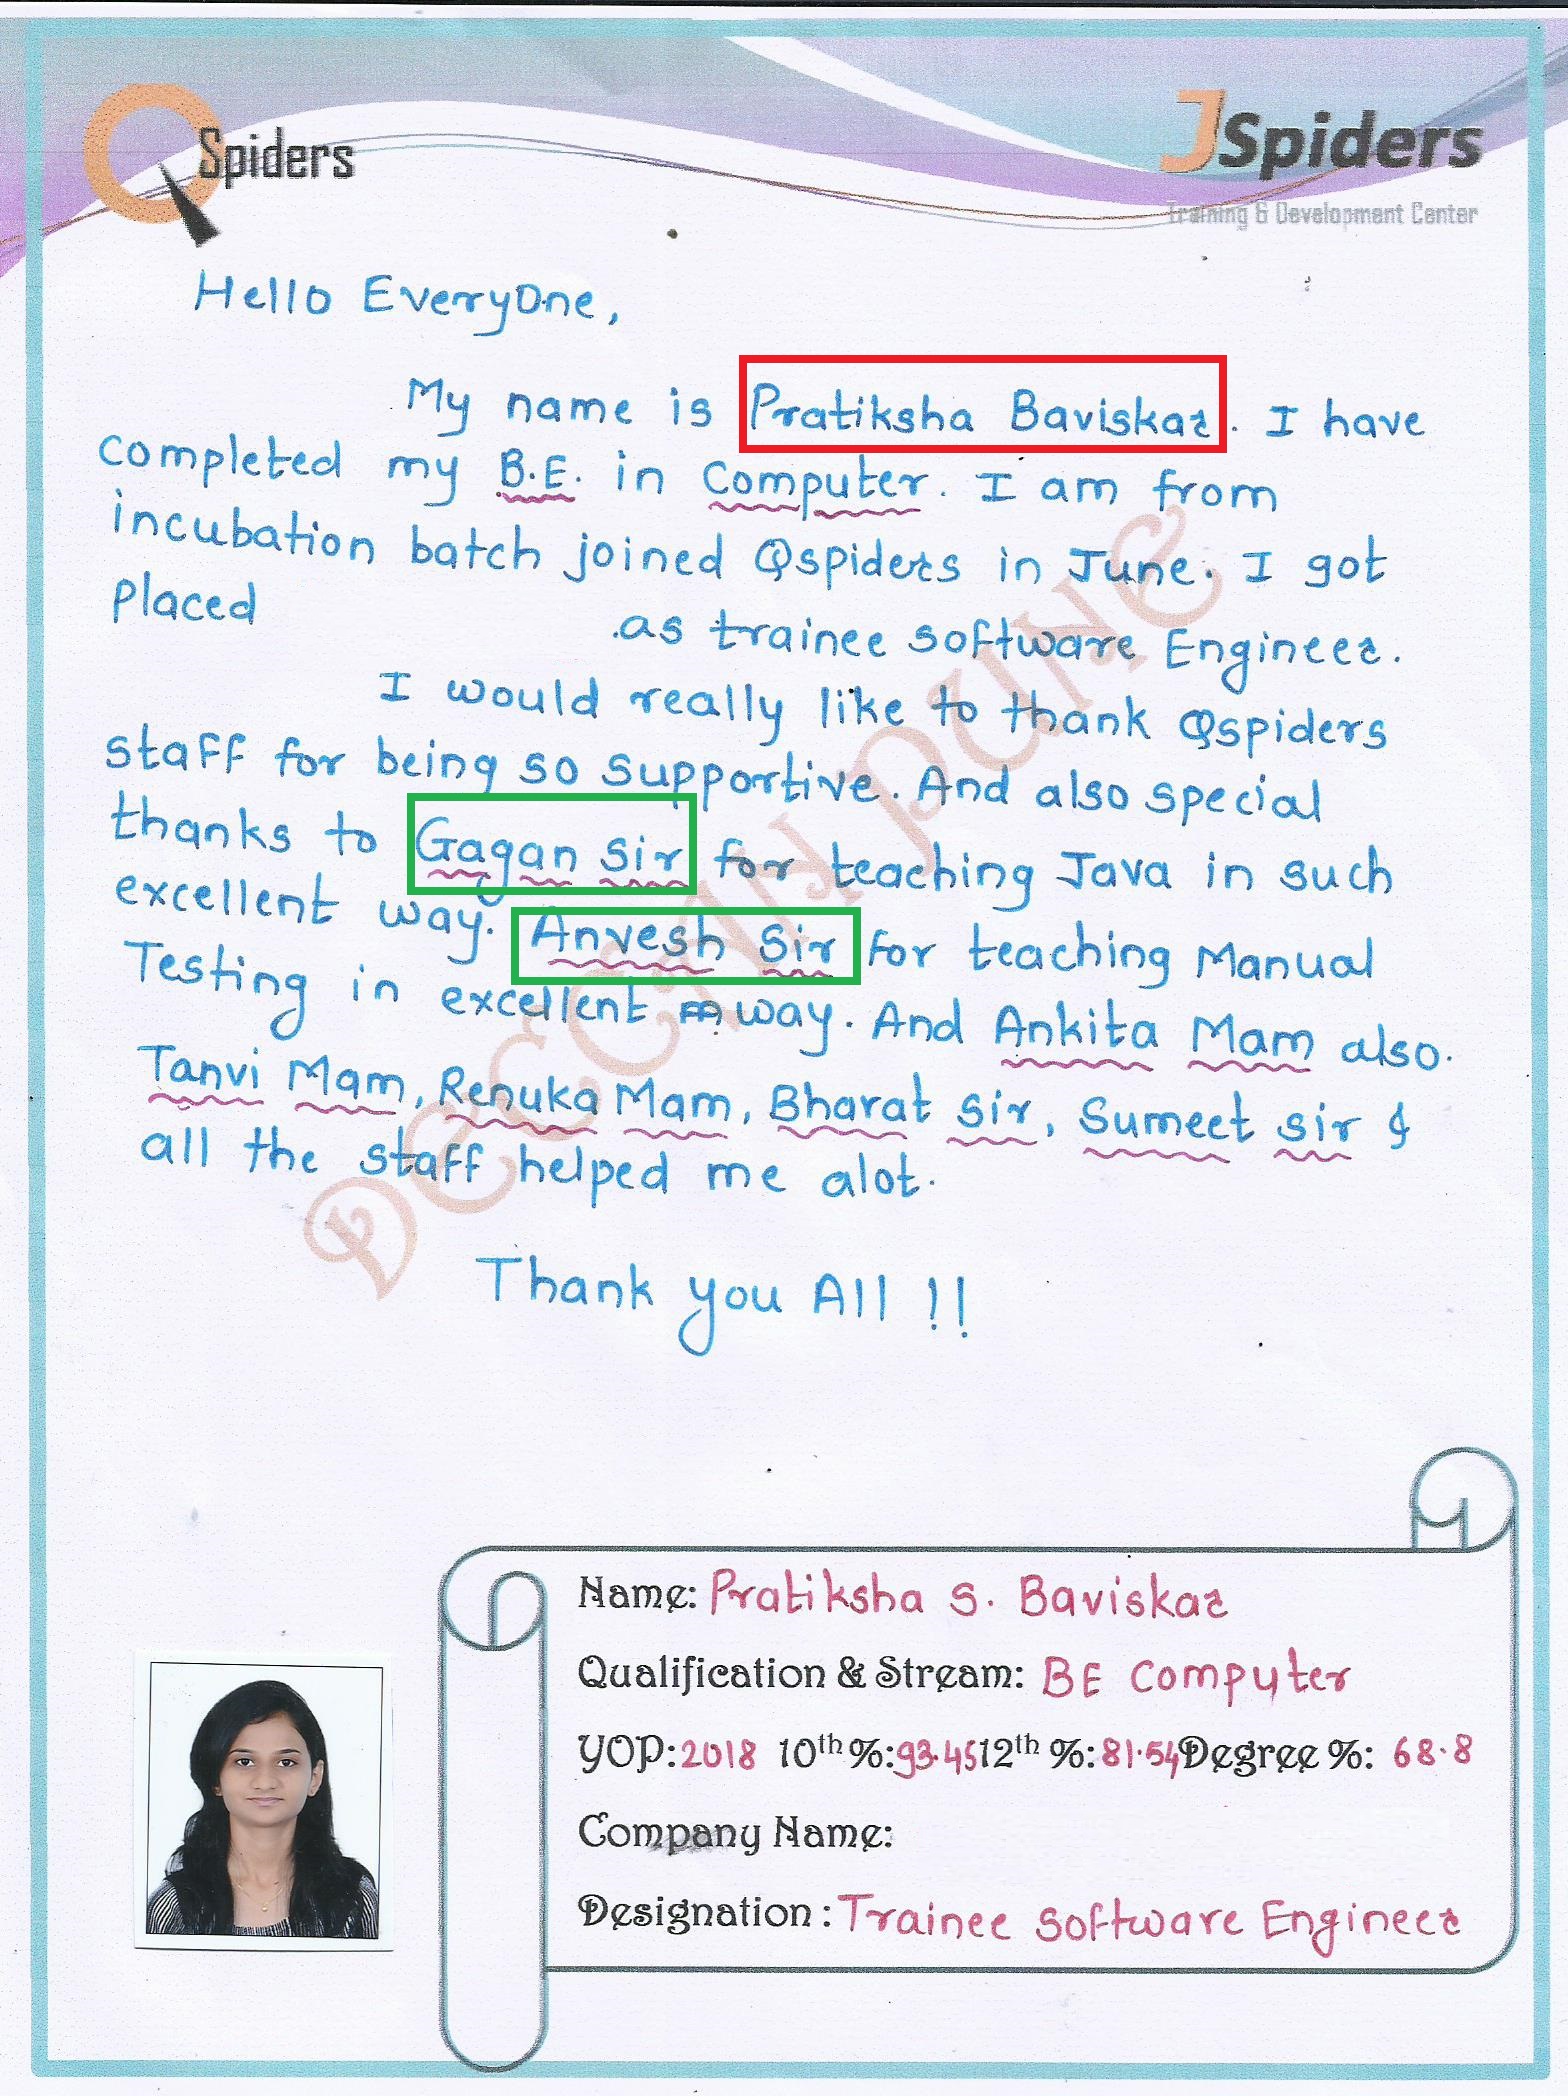 QSpiders
JSpiders
Training & Development Center
Hello Everyone,
My name is Pratiksha Baviskar. I have
completed my B.E. in Computer. I am from
incubation batch joined Qspiders in June. I got
placed .as trainee software Engineer.
I would really like to thank Qspiders
staff for being so supportive. And also special
thanks to Gagan Sir for teaching Java in such
excellent way. Anvesh Sir for teaching Manual
Testing in excellent way. And Ankita Mam also.
Tanvi Mam, Renuka Mam, Bharat sir, Sumeet sir &
all the staff helped me alot.
Thank you All !!
DECCAN PUNE
Name: Pratiksha S. Baviskar
Qualification & Stream: BE Computer
YOP: 2018 10th %: 93.45 12th %: 81.54 Degree %: 68.8
Company Name:
Designation : Trainee Software Engineer